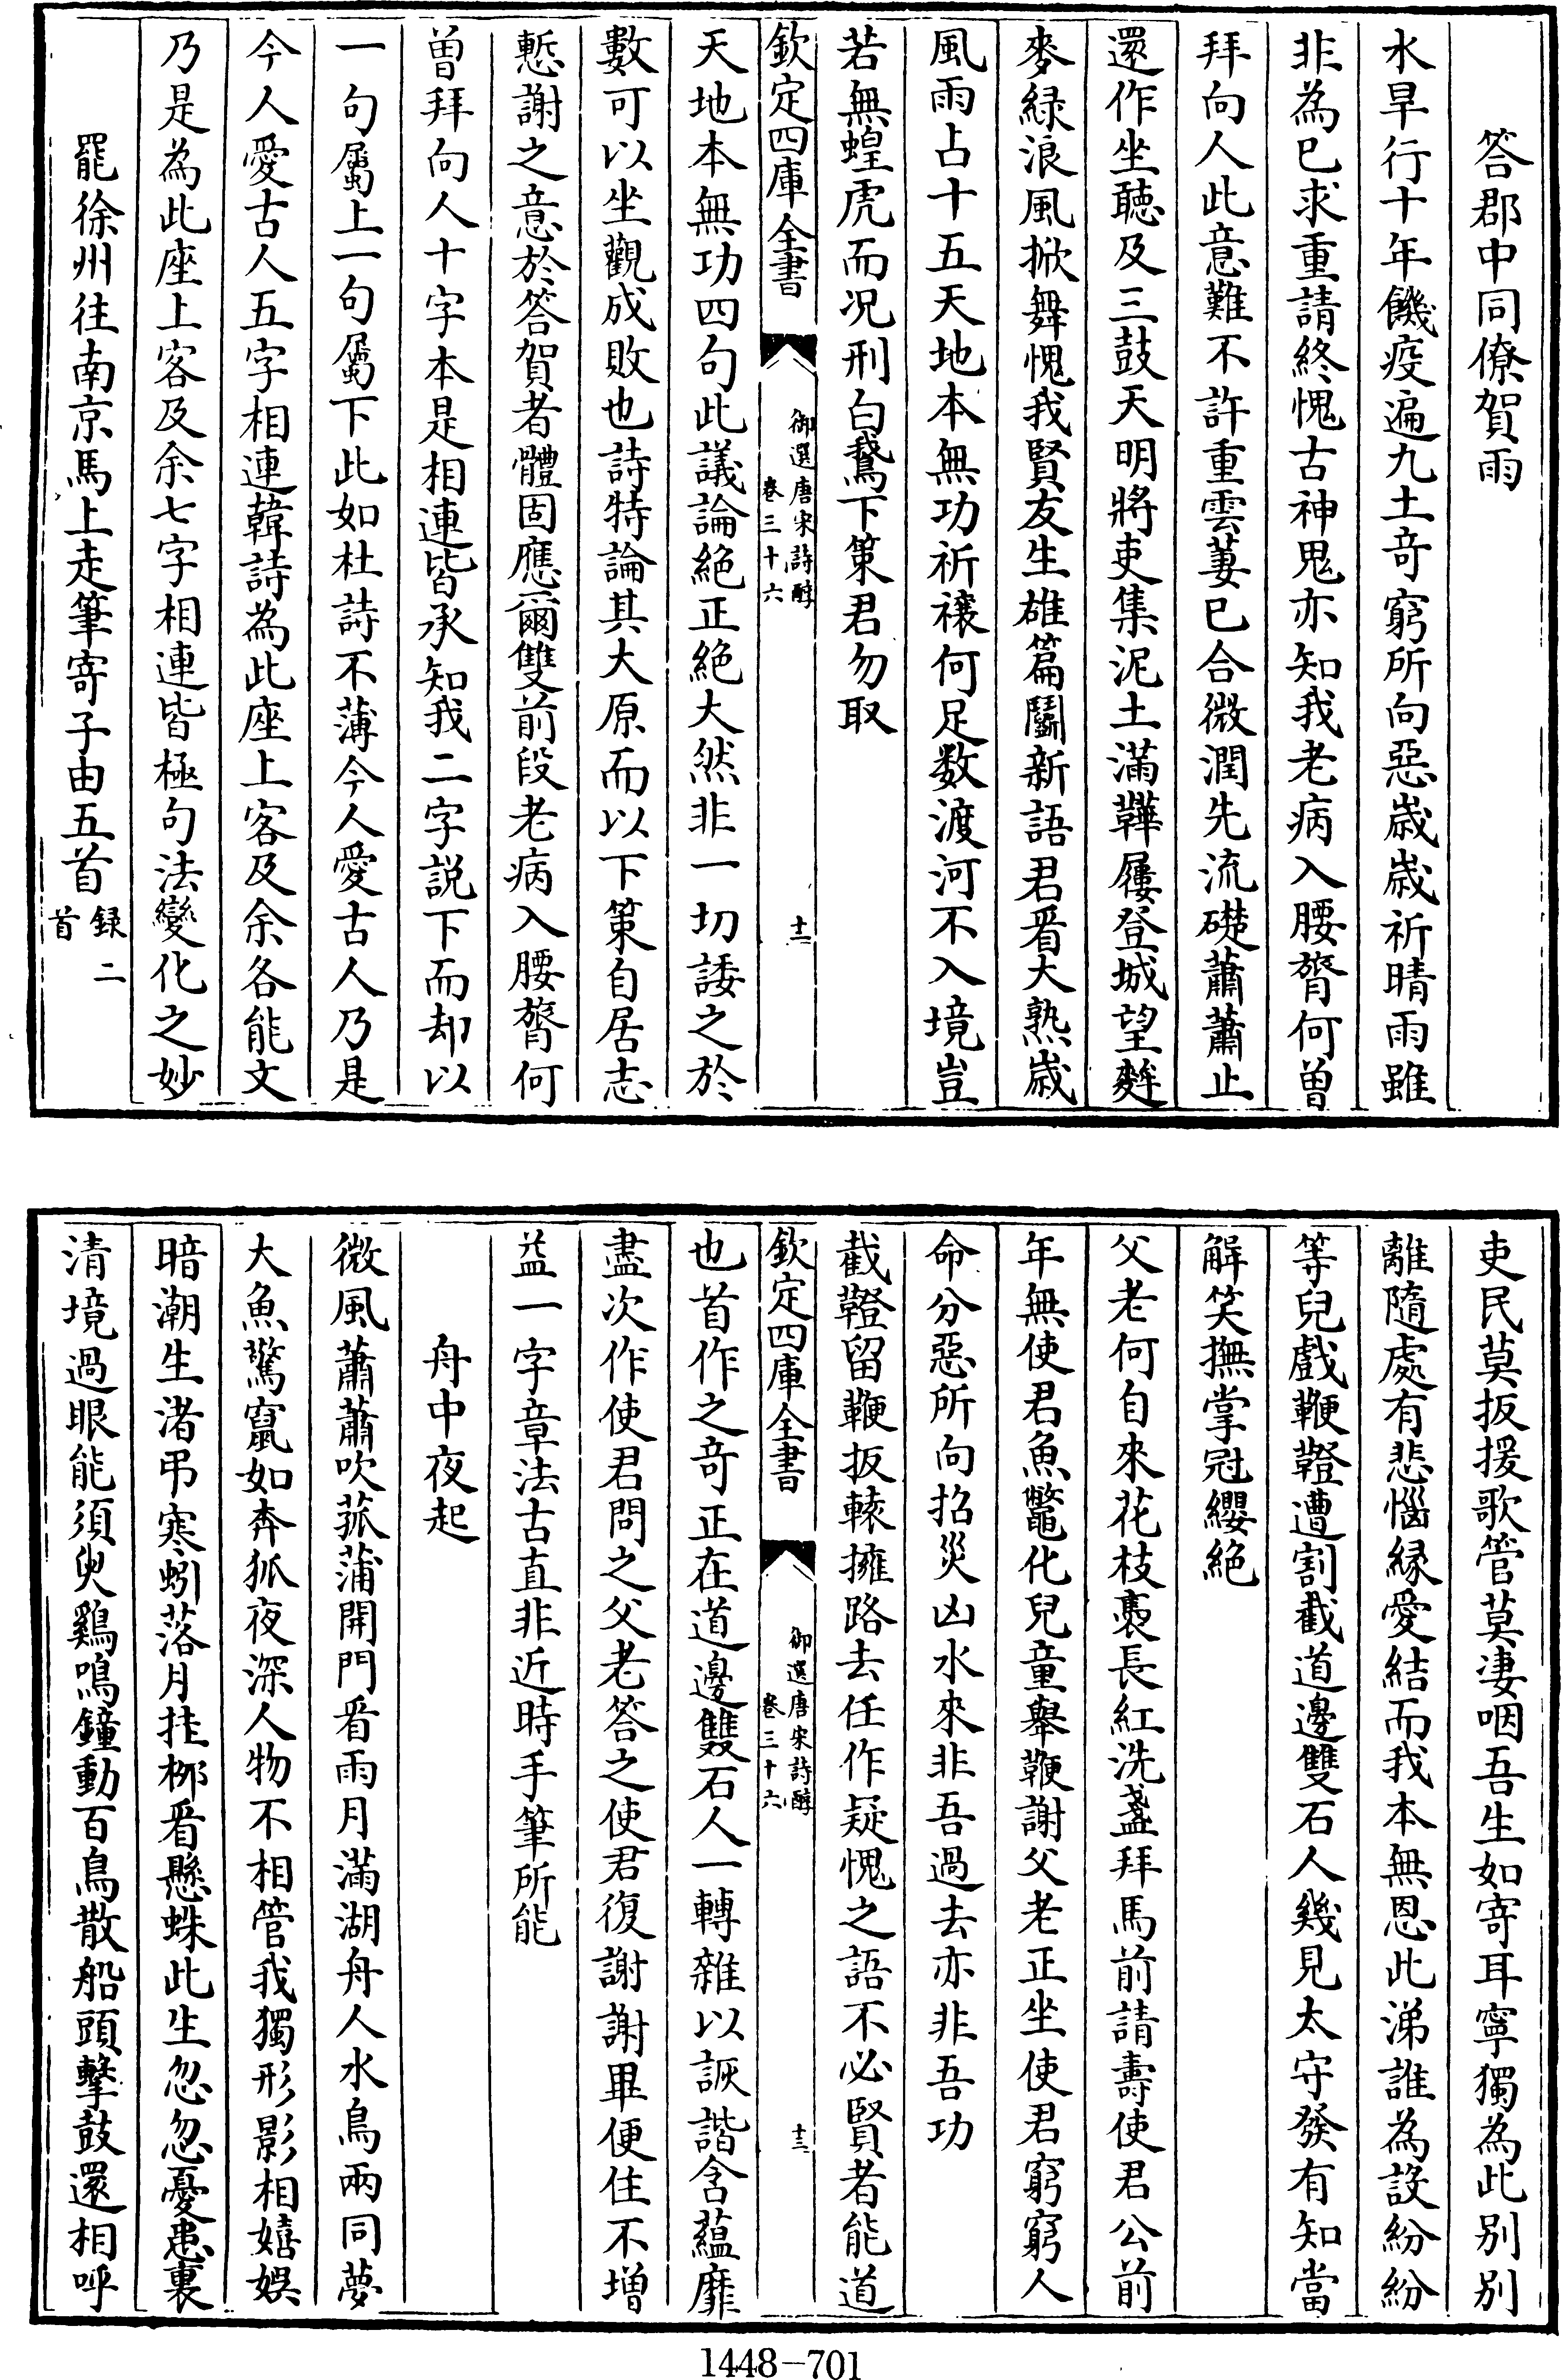 答郡中同僚賀雨
水旱行十年饑疫遍九土奇窮所向惡歲歲祈晴雨雖
非為已求重請終愧古神鬼亦知我老病入腰膂何曽
拜向人此意難不許重雲萋已合微潤先流礎蕭蕭止
還作坐聽及三鼓天明將吏集泥土滿鞾屨登城望麰
麥緑浪風掀舞愧我賢友生雄篇鬬新語君看大熟歲
風雨占十五天地本無功祈禳何足数渡河不入境豈
若無蝗虎而况刑白鵞下策君勿取
欽定四庫全書
御選唐宋詩醇
卷三十六
十二
天地本無功四句此議論絶正絶大然非一切諉之於
數可以坐觀成敗也詩特論其大原而以下策自居志
慙謝之意於答賀者體固應爾雙前段老病入腰膂何
曽拜向人十字本是相連皆承知我二字説下而却以
一句屬上一句屬下此如杜詩不薄今人愛古人乃是
今人愛古人五字相連韓詩為此座上客及余各能文
乃是為此座上客及余七字相連皆極句法變化之妙
罷徐州往南京馬上走筆寄子由五首
録二
首
吏民莫扳援歌管莫凄咽吾生如寄耳寧獨為此别别
離隨處有悲惱縁愛結而我本無恩此涕誰為設紛紛
等兒戲鞭鐙遭割截道邊雙石人幾見太守發有知當
解笑撫掌冠纓絶
父老何自來花枝裊長紅洗盞拜馬前請壽使君公前
年無使君魚鼈化兒童舉鞭謝父老正坐使君窮窮人
命分惡所向招災凶水來非吾過去亦非吾功
截鐙留鞭扳轅擁路去任作疑愧之語不必賢者能道
欽定四庫全書
御選唐宋詩醇
卷三十六
十三
也首作之奇正在道邊雙石人一轉雜以詼諧含蘊靡
盡次作使君問之父老答之使君復謝謝畢便住不增
益一字章法古直非近時手筆所能
舟中夜起
微風蕭蕭吹菰蒲開門看雨月滿湖舟人水鳥兩同夢
大魚驚竄如奔狐夜深人物不相管我獨形影相嬉娱
暗潮生渚弔寒蚓落月挂栁看懸蛛此生忽忽憂患裏
清境過眼能須臾鷄鳴鐘動百鳥散船頭擊鼓還相呼
1448-701